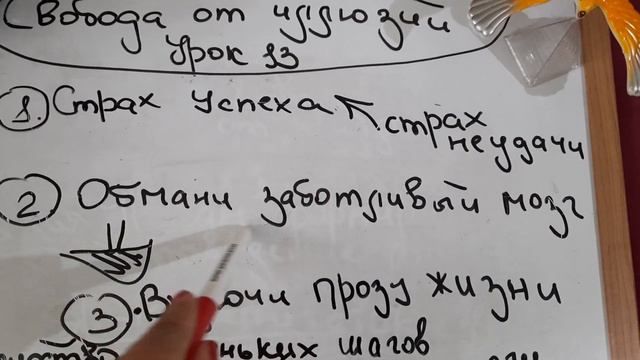 Свобода от иллюзий
Урок 13
1. Страх успеха
страх
неудачи
2 Обмани заботливый мозг
3 прозу жизни
шагов